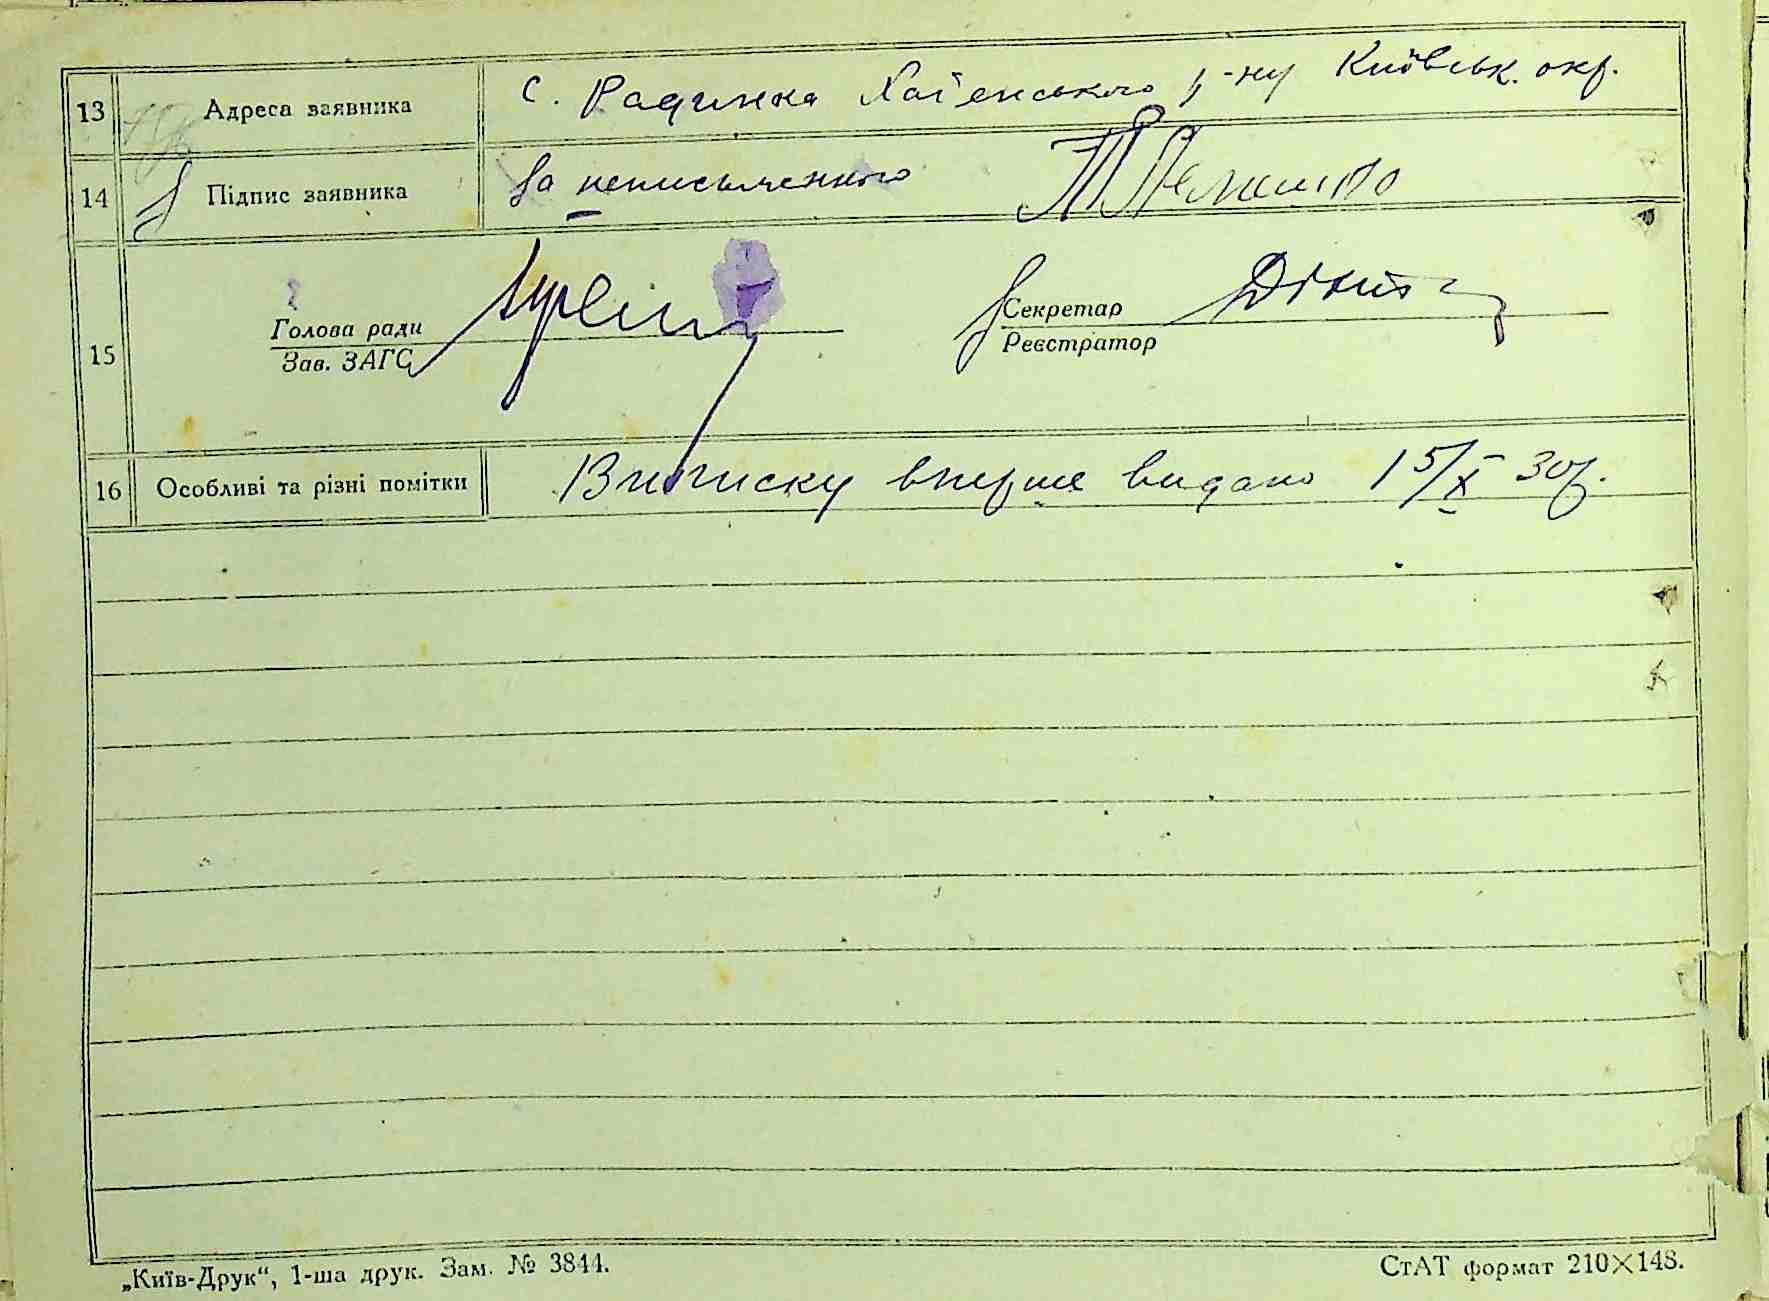 13 Адреса заявника с. Радинка Хабенського р-ну Київськ. окр.
14 Підпис заявника За неписьменного
15 Голова ради
Зав. ЗАГС
Секретар
Реєстратор
16 Особливі та різні помітки Виписку вперше видано 15/X 30р.
„Київ-Друк“, 1-ша друк. Зам. № 3844.
СтАТ формат 210×148.